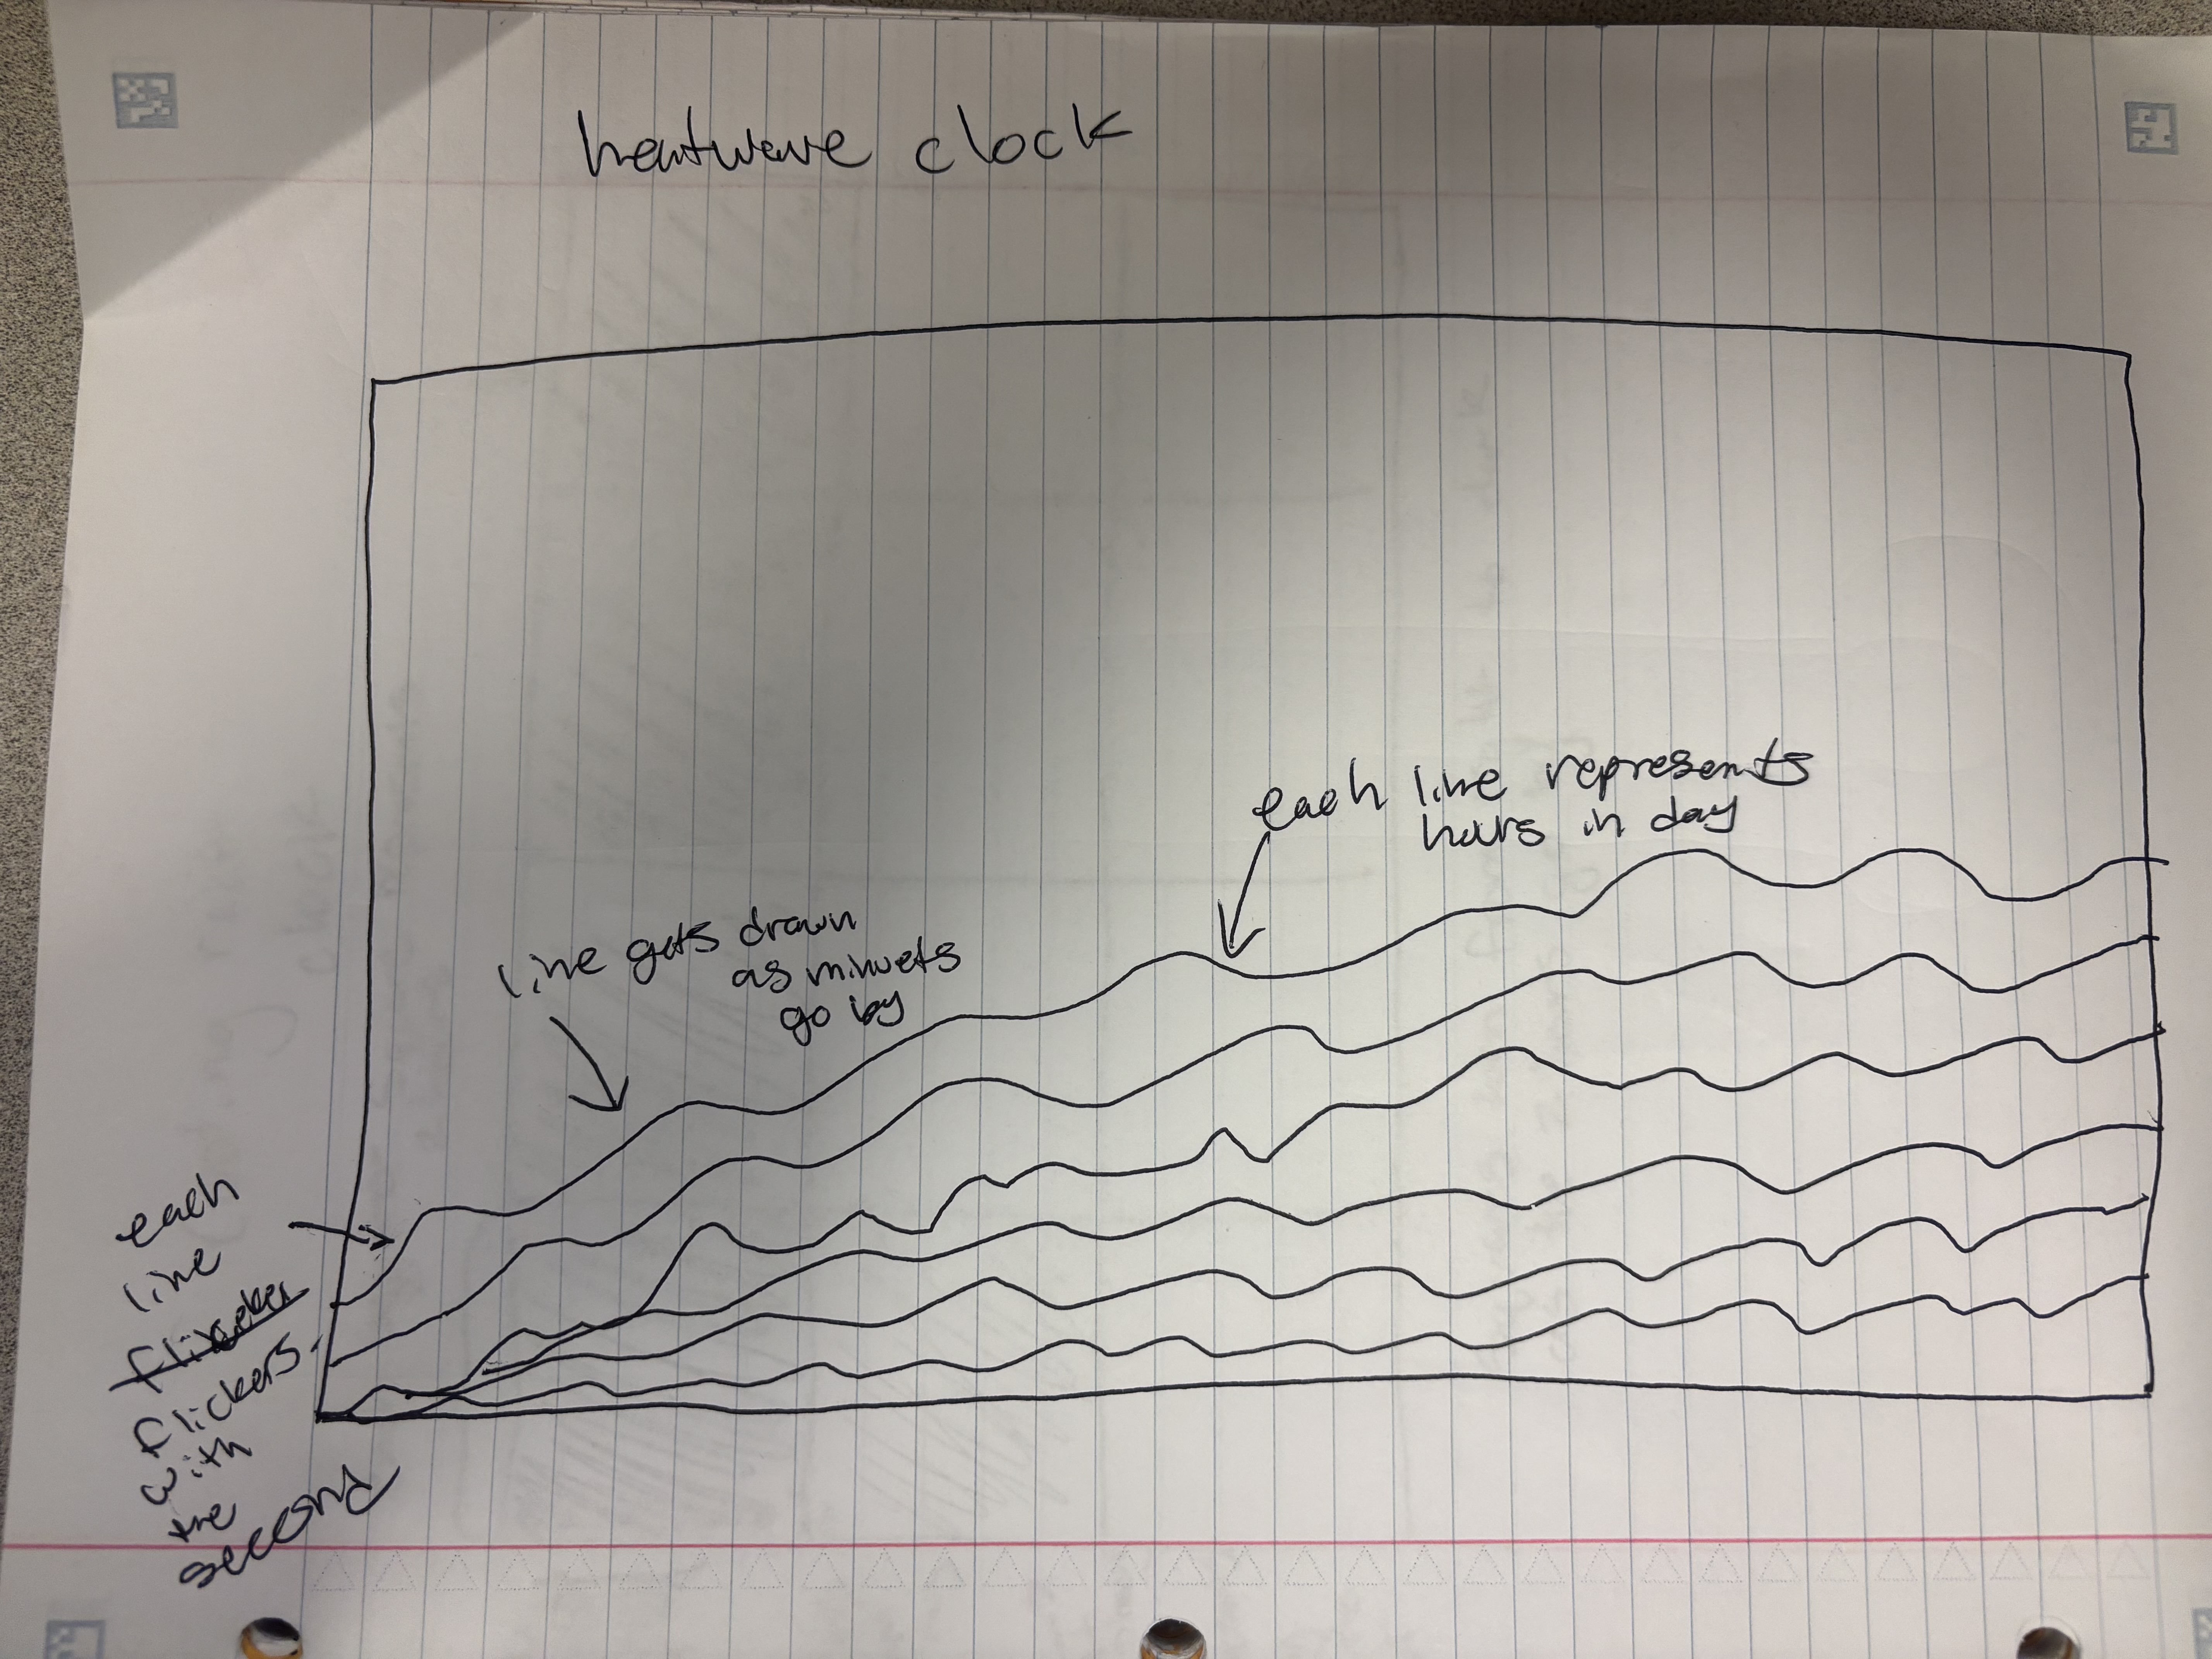 heatwave clock
each line represents
hours in day
line gets drawn
as minuets
go by
each
line
flickers
with
the
second